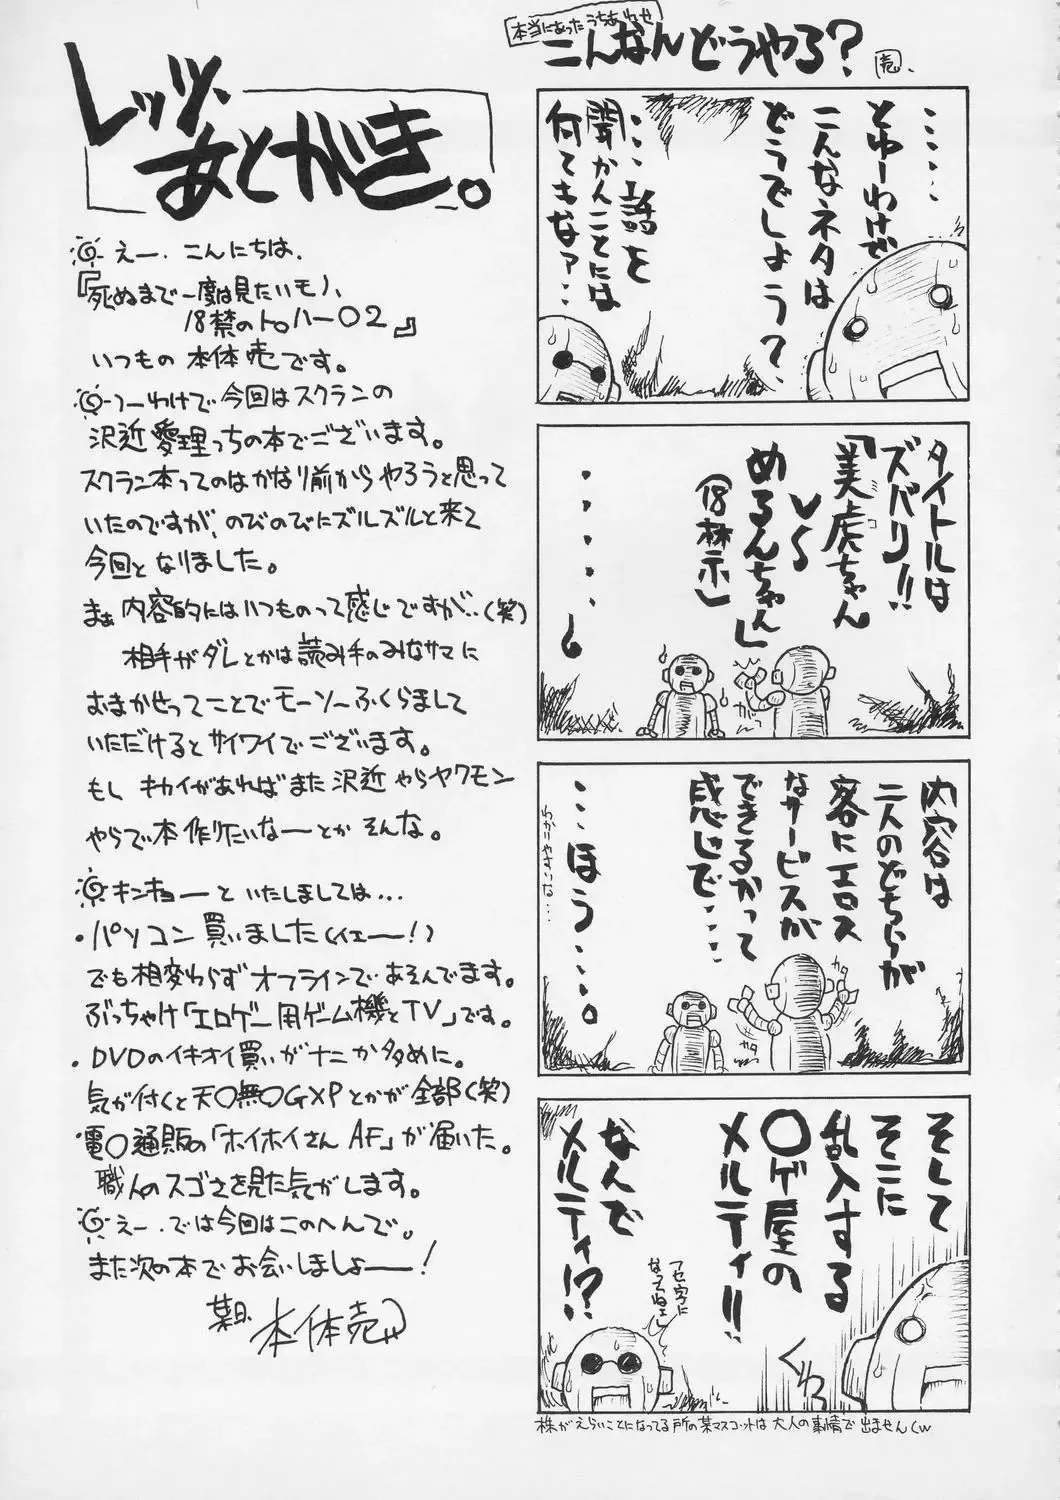 レッツ、
あとがき。
えー、こんにちは、
『死ぬまで一度は見たいモノ、
18禁のトロハー02』
いつもの 本体売です。
つーわけで今回はスクランの
沢近愛理っちの本でございます。
スクラン本ってのはかなり前からやろうと思って
いたのですが、のびのびにズルズルと来て
今回となりました。
まぁ内容的にはいつものって感じですが…(笑)
相手がダレとかは読み手のみなサマに
おまかせってことでモーソーふくらまして
いただけるとサイワイでございます。
もし キカイがあればまた沢近やらヤクモン
やらで本作りたいなーとか そんな。
キンキョーといたしましては…
・パソコン買いました(イェー!)
でも相変わらずオフラインであそんでます。
ぶっちゃけ「エロゲー用ゲーム機とTV」です。
・DVDのイキオイ買いがナニか多めに。
気が付くと天〇無〇GXPとかが全部(笑)
電〇通販の「ホイホイさんAF」が届いた。
職人のスゴさを見た気がします。
えー、では今回はこのへんで。
また次の本でお会いしましょー!
本体売
本当にあったうちあわせ
こんなんどうやる?
売
……
とゆーわけで
こんなネタは
どうでしょう?
…話を
聞かんことには
何てもなァ…
タイトルは
ズバリ!!
「美虎ちゃん
ミコ
VS
めるんちゃん」
(18禁)
......
ガッ
内容は
二人のどちらが
客にエロス
なサービスが
できるかって
感じで…
…ほう…。
わかりやすいな…
カタ
カタ
そして
そこに
乱入する
〇ゲ屋の
メルティ!!
なんで
メルティ!?
フセ字に
なってねェし
ぐわっ
株がえらいことになってる所の某マスコットは大人の事情で出ませんくw